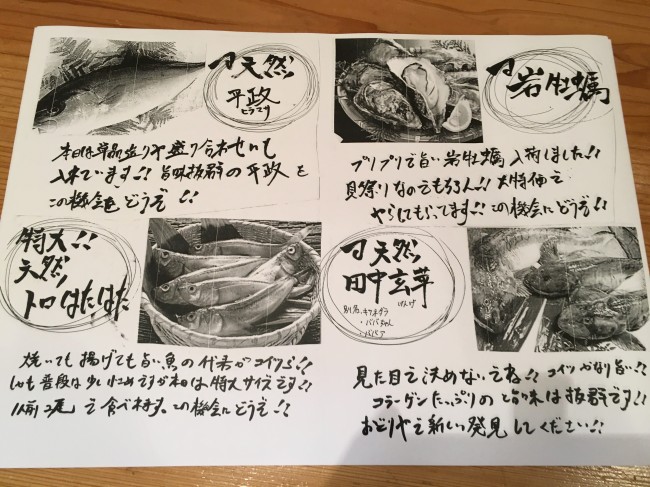 天然
平政
ヒラマサ
本日は単品盛りや盛り合わせにも
入れてます!! 旨味抜群の平政を
この機会にどうぞ!!
岩牡蠣
プリプリで旨い岩牡蠣入荷しました!!
貝祭りなのでもちろん!! 大特価で
やらしてもらってます!! この機会にどうぞ!!
特大!!
天然
トロはたはた
焼いても揚げても旨い魚の代表がコイツら!!
しかも普段は少し小さめですが本日は特大サイズです!!
1人前2尾で食べれます。この機会にどうぞ!!
天然
田中玄華
げんげ
別名
・ババちゃん
・ババア
見た目で決めないでね!! コイツかなり旨い!!
コラーゲンたっぷりの旨味は抜群です!!
おどりやで新しい発見してください!!